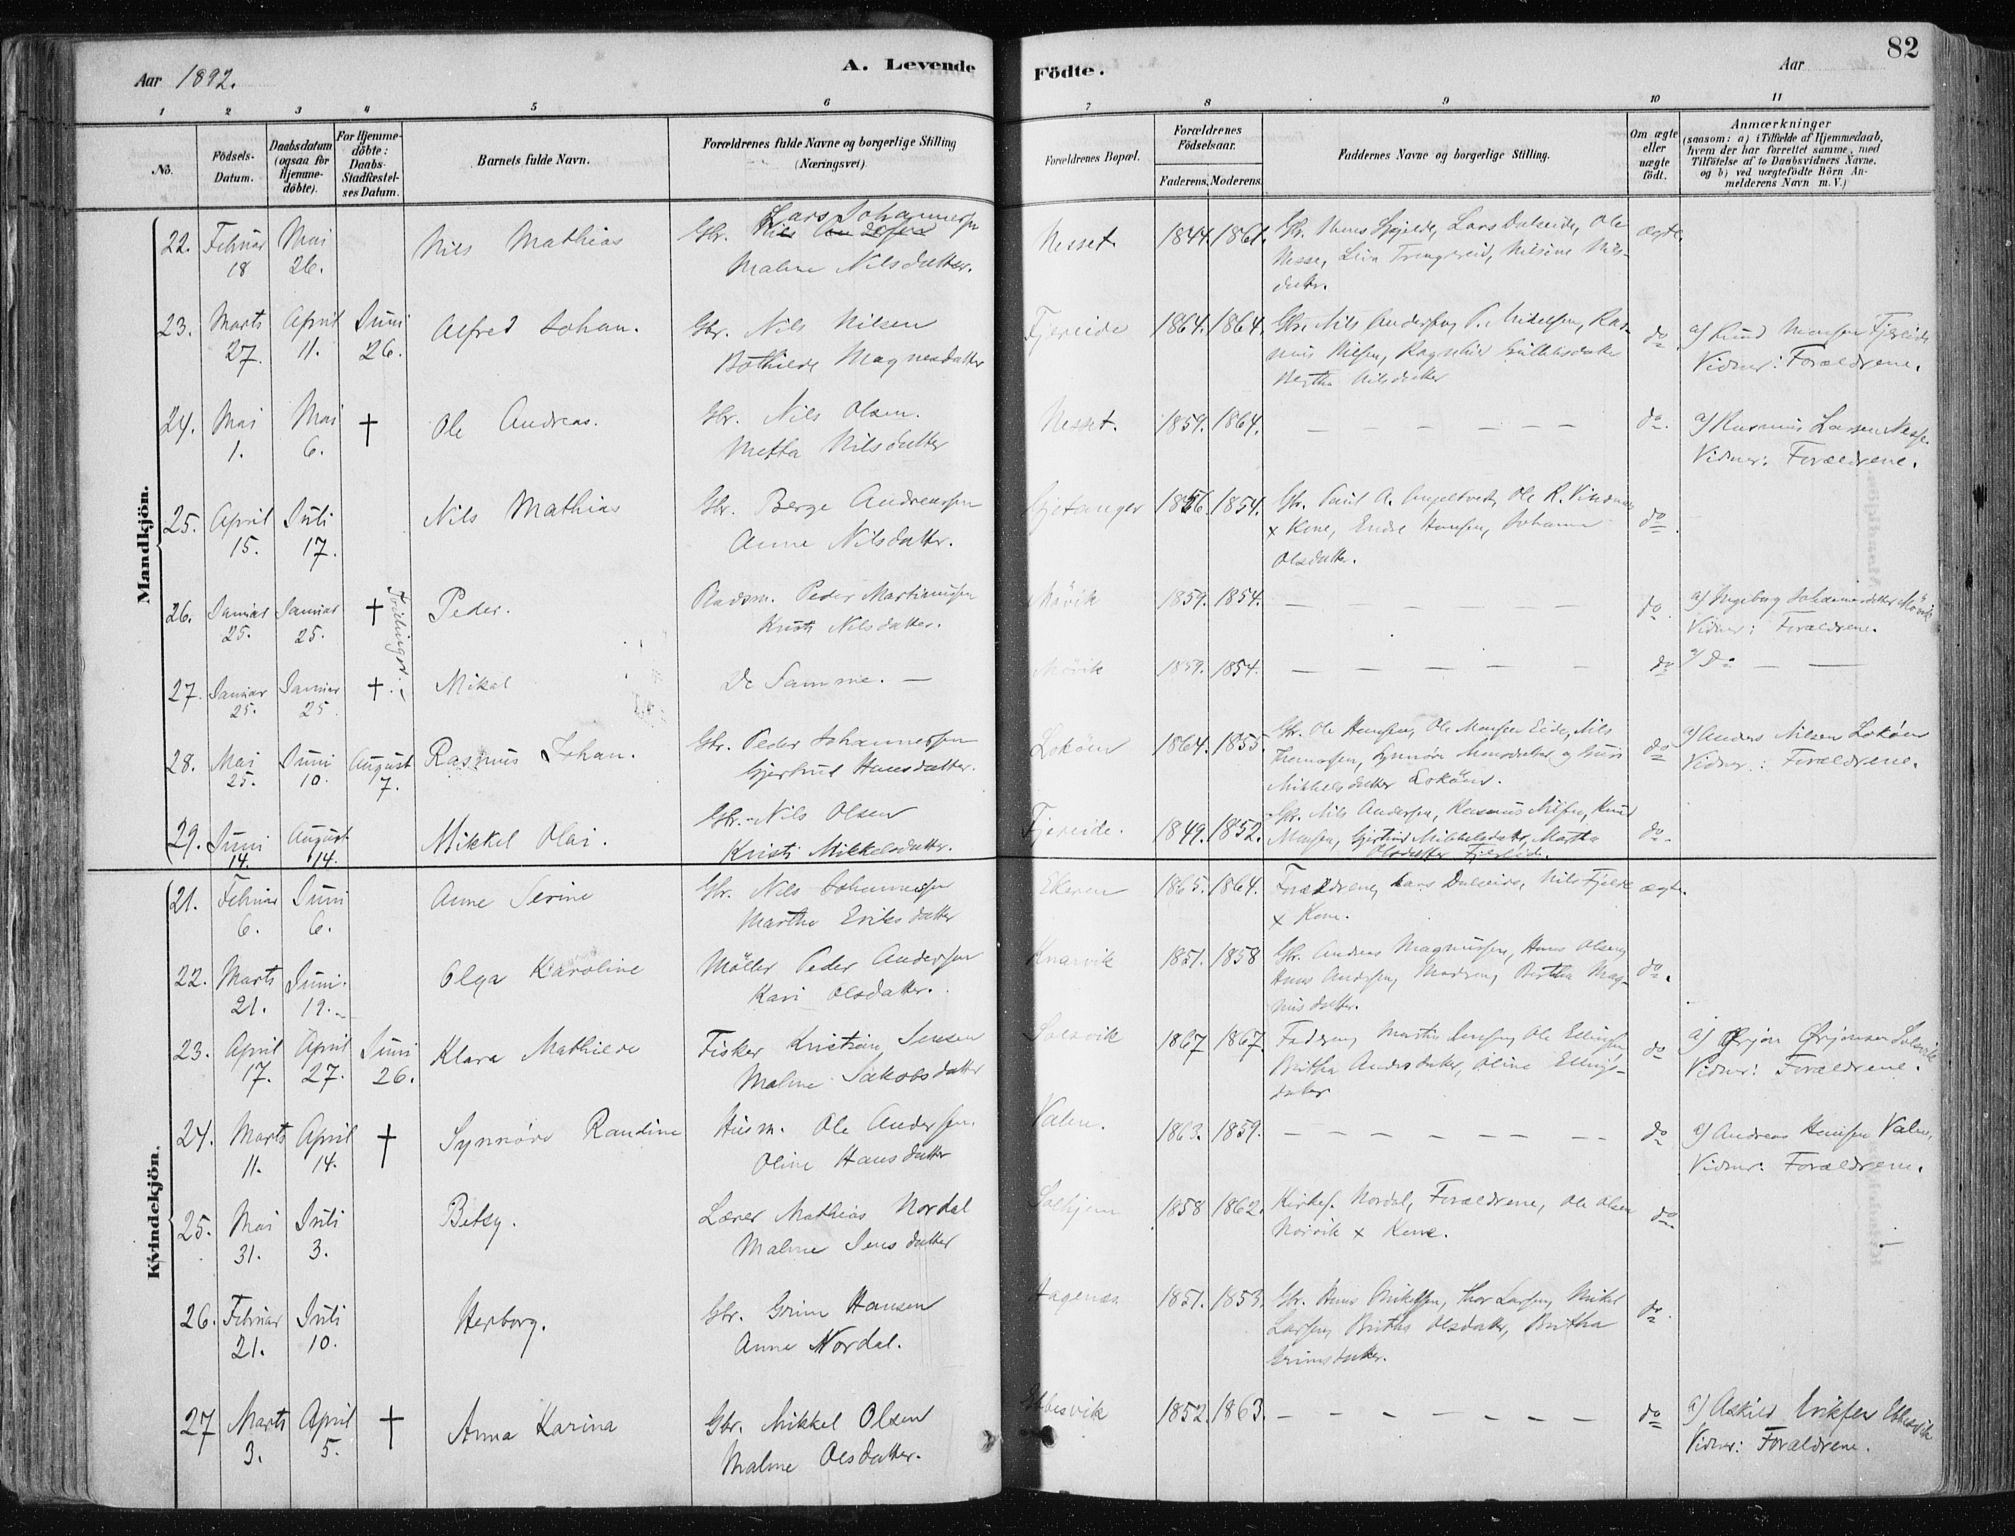 82
Aar 1892.
A. Levende
Födte.
Aar
1 2 3 4 5 6 7 8 9 10 11
No.
Födsels-
Datum.
Daabsdatum
(ogsaa for
Hjemme-
döbte).
For Hjemme-
döbte:
Daabs-
Stadfæstel-
ses Datum.
Barnets fulde Navn.
Forældrenes fulde Navne og borgerlige Stilling
(Næringsvei)
Forældrenes Bopæl.
Forældrenes
Födselsaar.
Faderens. Moderens.
Faddernes Navne og borgerlige Stilling.
Om ægte
eller
uægte
födt.
Anmærkninger
(saasom: a) i Tilfælde af Hjemmedaab,
hvem der har forrettet samme, med
Tilföielse af to Daabsvidners Navne,
og b) ved uægtefödte Börn An-
melderens Navn m. V.)
Mandkjön.
Lars Johannessen
22. Februar Mai Nils Mathias Gbr. Nesset. 1844. 1861. Gbr. Lars Dalseide, Ole ægte.
18 26. Malene Nilsdatter. Nesse, Nilsine Nils-
datter.
23. Marts April Juni Alfred Johan. Gbr. Nils Nilsen Fjereide 1864. 1864. Gbr. Nils Andersen, P. Mikelsen, Ras- do a) Knud Monsen Fjereide
27. 11. 26. Bothilde Magnesdatter mus Nilsen, Vidner: Forældrene.
Bertha Nilsdatter
24. Mai Mai † Ole Andreas. Gbr. Nils Olsen. Nesset. 1859. 1864. — — — — — — do. a) Rasmus Larsen Nesse.
1. 6. Metta Nilsdatter Vidner: Forældrene.
25. April Juli Nils Mathias Gbr. Berge Andreassen 1856. 1854. Gbr. Paul A. Angeltveit, Ole R. do.
15. 17. Anne Nilsdatter. x Kone, Endre Hansen, Johanna
Olsdatter.
Tvillinger.
26. Januar Januar † Peder. Pladsm. Peder Martinussen Mövik 1859. 1854. — — — — — do. a) Ingeborg Johannesdatter Mövik
25. 25. Kristi Nilsdatter. Vidner: Forældrene.
27. Januar Januar †. Mikal De Samme. — Mövik 1859. 1854. — — — — — do a) Do — —
25. 25.
28. Mai Juni August Rasmus Johan. Gbr. Peder Johannessen Lokøen 1864. 1855. Gbr. Ole Hansen, Ole Monsen Eide, Nils do a) Anders Nilsen Lokøen
25. 10. 7. Gjertrud Hansdatter. Thomassen, Synnöve Monsdatter og Guri Vidner: Forældrene.
Mikkelsdatter Lokøen.
29. Juni August Mikkel Olai. Gbr. Nils Olsen Fjereide. 1849. 1852. Gbr. Nils Andersen, Rasmus Nilsen, Knud do.
14. 14. Kristi Mikkelsdatter. Monsen, Gjertrud Mikkelsdatter, Martha
Olsdatter Fjereide.
Kvindekjön.
21. Februar Juni Anne Serine Gbr. Nils Johannessen Ekeren 1865. 1864. Forældrene, Lars Dalseide, Nils Fjelde ægte.
6. 6. Martha Eriksdatter x Kone.
22. Marts Juni. Olga Karoline Møller Peder Andersen Knarvik 1851. 1858 Gbr. Andreas Magnussen, Hans Olsen, do.
21. 19. Kari Olsdatter. Hans Andersen, Madsen, Bertha Mag-
nusdatter.
23. April April Juni Klara Mathilde Fisker Kristian Jensen Solsvik 1867 1867. Faderen, Martin Jensen, Ole Ellingsen do a) Ørjon Ørjonsen Solsvik
17. 27. 26. Malene Jakobsdatter Britha Andersdatter, Oline Ellings- Vidner: Forældrene.
datter
24. Marts April † Synnöve Randine Husm. Ole Andersen. Valen. 1863. 1859. — — — — — — do a) Andreas Hansen Valen.
11. 14. Oline Hansdatter Vidner: Forældrene.
25. Mai Juli Betsy. Lærer Mathias Nordal Solhjem 1858 1862. Kirkes. Nordal, Forældrene, Ole Olsen do.
31. 3. Malene Jensdatter x Kone.
26. Februar Juli Herborg. Gbr. Grim Hansen Hagenæs 1851. 1853. Gbr. Hans Mikelsen, Thor Larsen, Mikel do.
21. 10. Anne Nordal. Larsen, Britha Olsdatter, Britha
Grimsdatter.
27 Marts April † Anna Karina Gbr. Mikkel Olsen Ebbesvik 1852. 1863. — — — — — — do a) Askild Eriksen Ebbesvik
3. 5. Malene Olsdatter. Vidner: Forældrene.